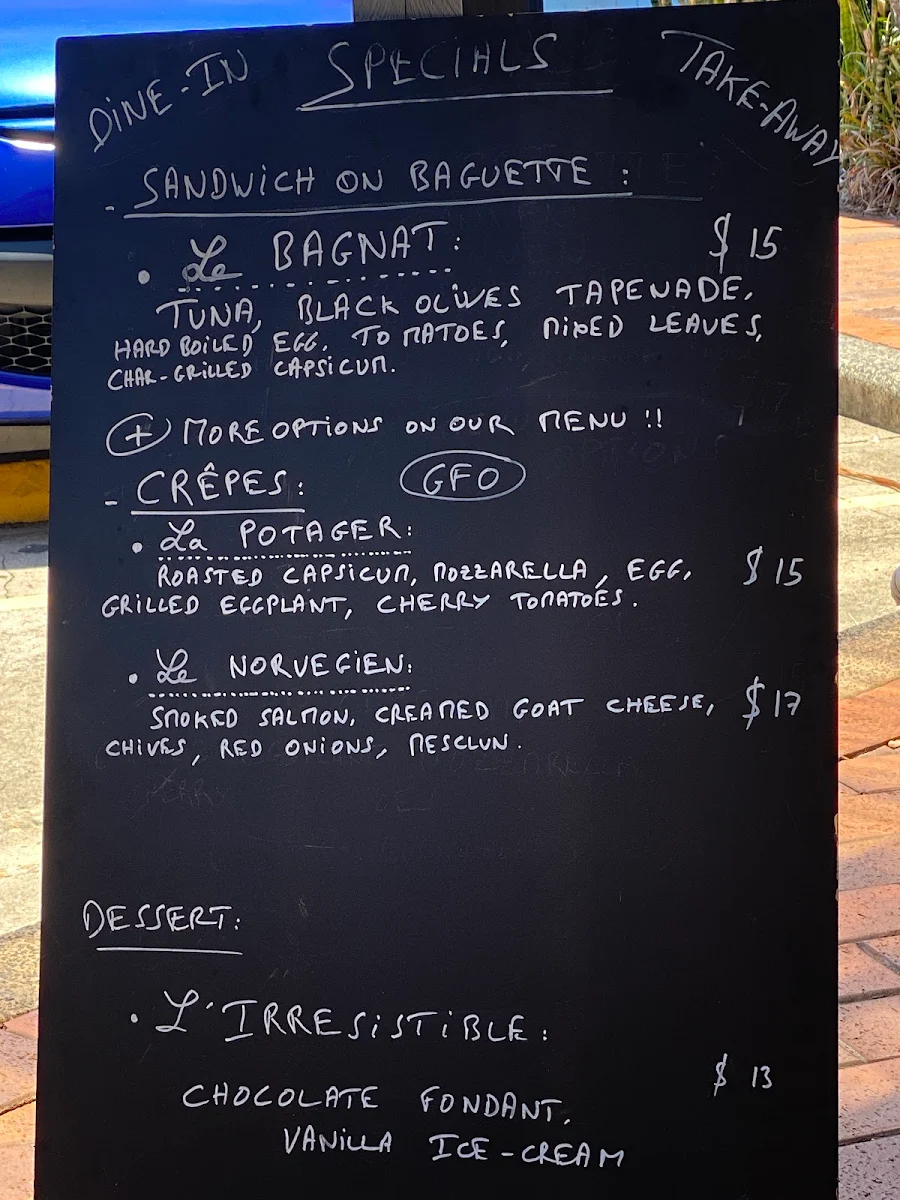 DINE-IN SPECIALS TAKE-AWAY
- SANDWICH ON BAGUETTE :
• Le BAGNAT: $ 15
TUNA, BLACK OLIVES TAPENADE,
HARD BOILED EGG, TOMATOES, MIXED LEAVES,
CHAR-GRILLED CAPSICUM.
+ MORE OPTIONS ON OUR MENU !!
- CRÊPES: GFO
• La POTAGER:
ROASTED CAPSICUM, MOZZARELLA, EGG, $ 15
GRILLED EGGPLANT, CHERRY TOMATOES.
• Le NORVEGIEN:
SMOKED SALMON, CREAMED GOAT CHEESE, $ 17
CHIVES, RED ONIONS, MESCLUN.
DESSERT:
• L'IRRESISTIBLE:
$ 13
CHOCOLATE FONDANT,
VANILLA ICE-CREAM